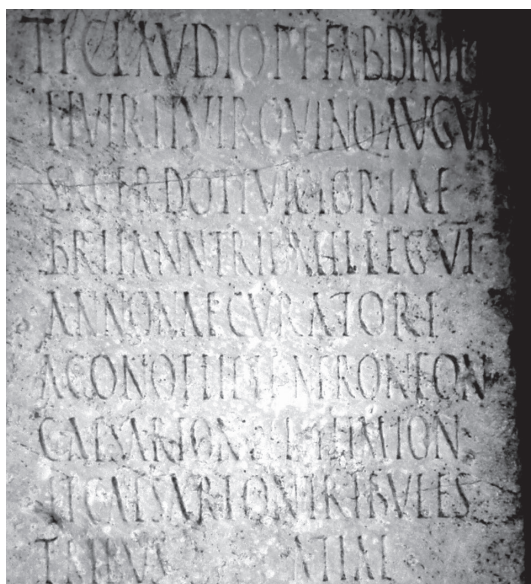 TI CLAVDIO P F FAB
II VIR II VIR QVINQ AVGVR
SACERDOTI VICTORIAE
BRITANN TRIB MIL LEG VI
ANNONAE CVRATORI
AGONOTHETE NERONEON
CAESARION ET ISTHMION
ET CAESARION TRIBVLES